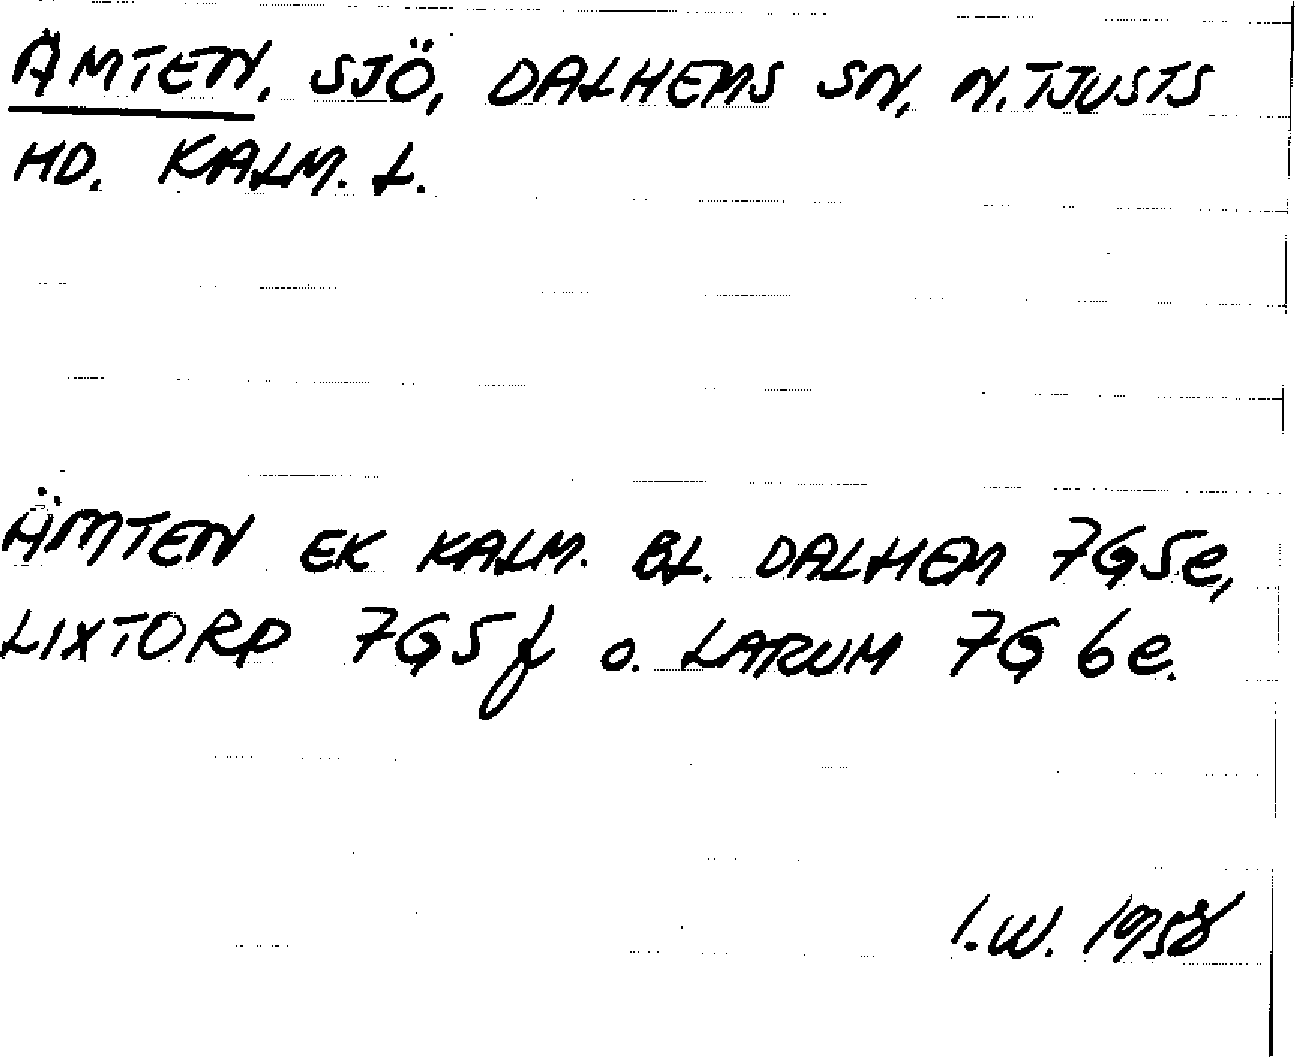 ÄMTEN, SJÖ, DALHEMS SN, N. TJUSTS
HD. KALM. L.
ÄMTEN EK KALM. BL. DALHEM 7G5e,
LIXTORP 7G5f o. LARUM 7G6e.
I.W. 1958